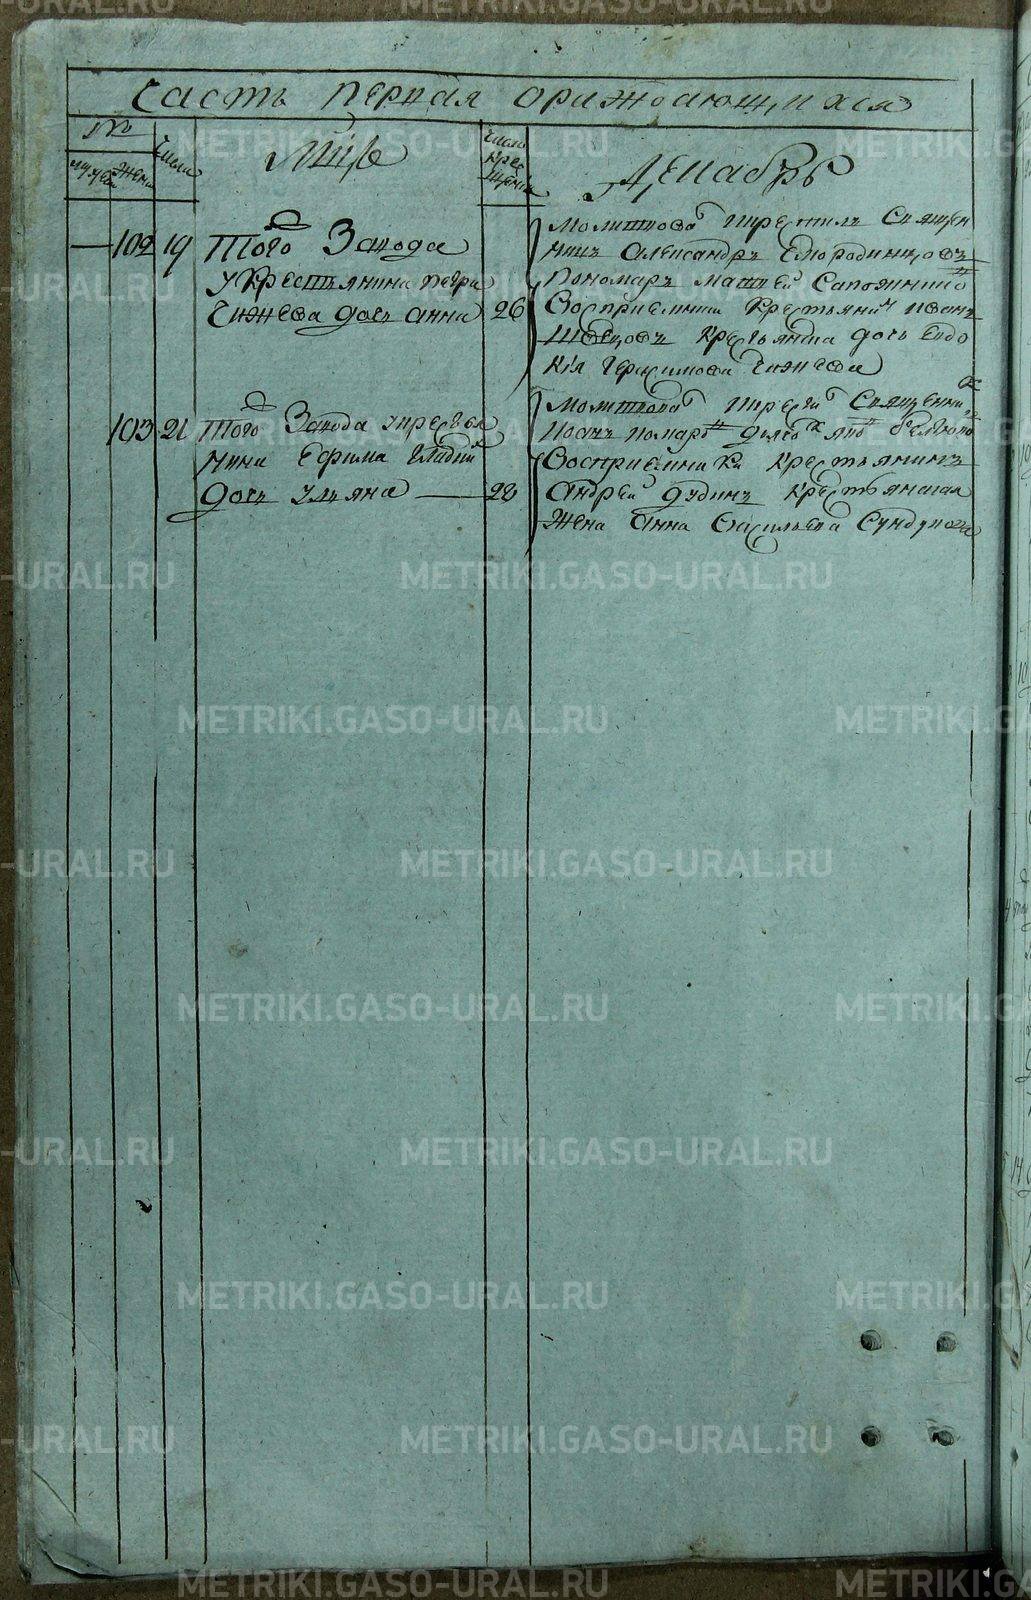 Часть первая о раждающихся
№
Мужеск Женск
Числа
Міце
Число крещения
Декабрь
102 19 Того Завода
у Крестьянина Петра
Чижева дочь Анна 26
Молитвовалъ и крестилъ Священ
никъ Александръ Смородинцовъ
Пономарь Матвей Сапожниковъ
Восприемники Крестьянинъ Иванъ
Швецовъ Крестьянина дочь Евдо
кия Герасимова Чижева
103 21 Того Завода у кресть
янина Ефима Гладких
дочь Ульяна 28
Молитвовалъ и крестилъ Священникъ
Иоанъ
Восприемники Крестьянинъ
Андрей Дудинъ Крестьянская
жена Анна Васильева Сундукова
METRIKI.GASO-URAL.RU